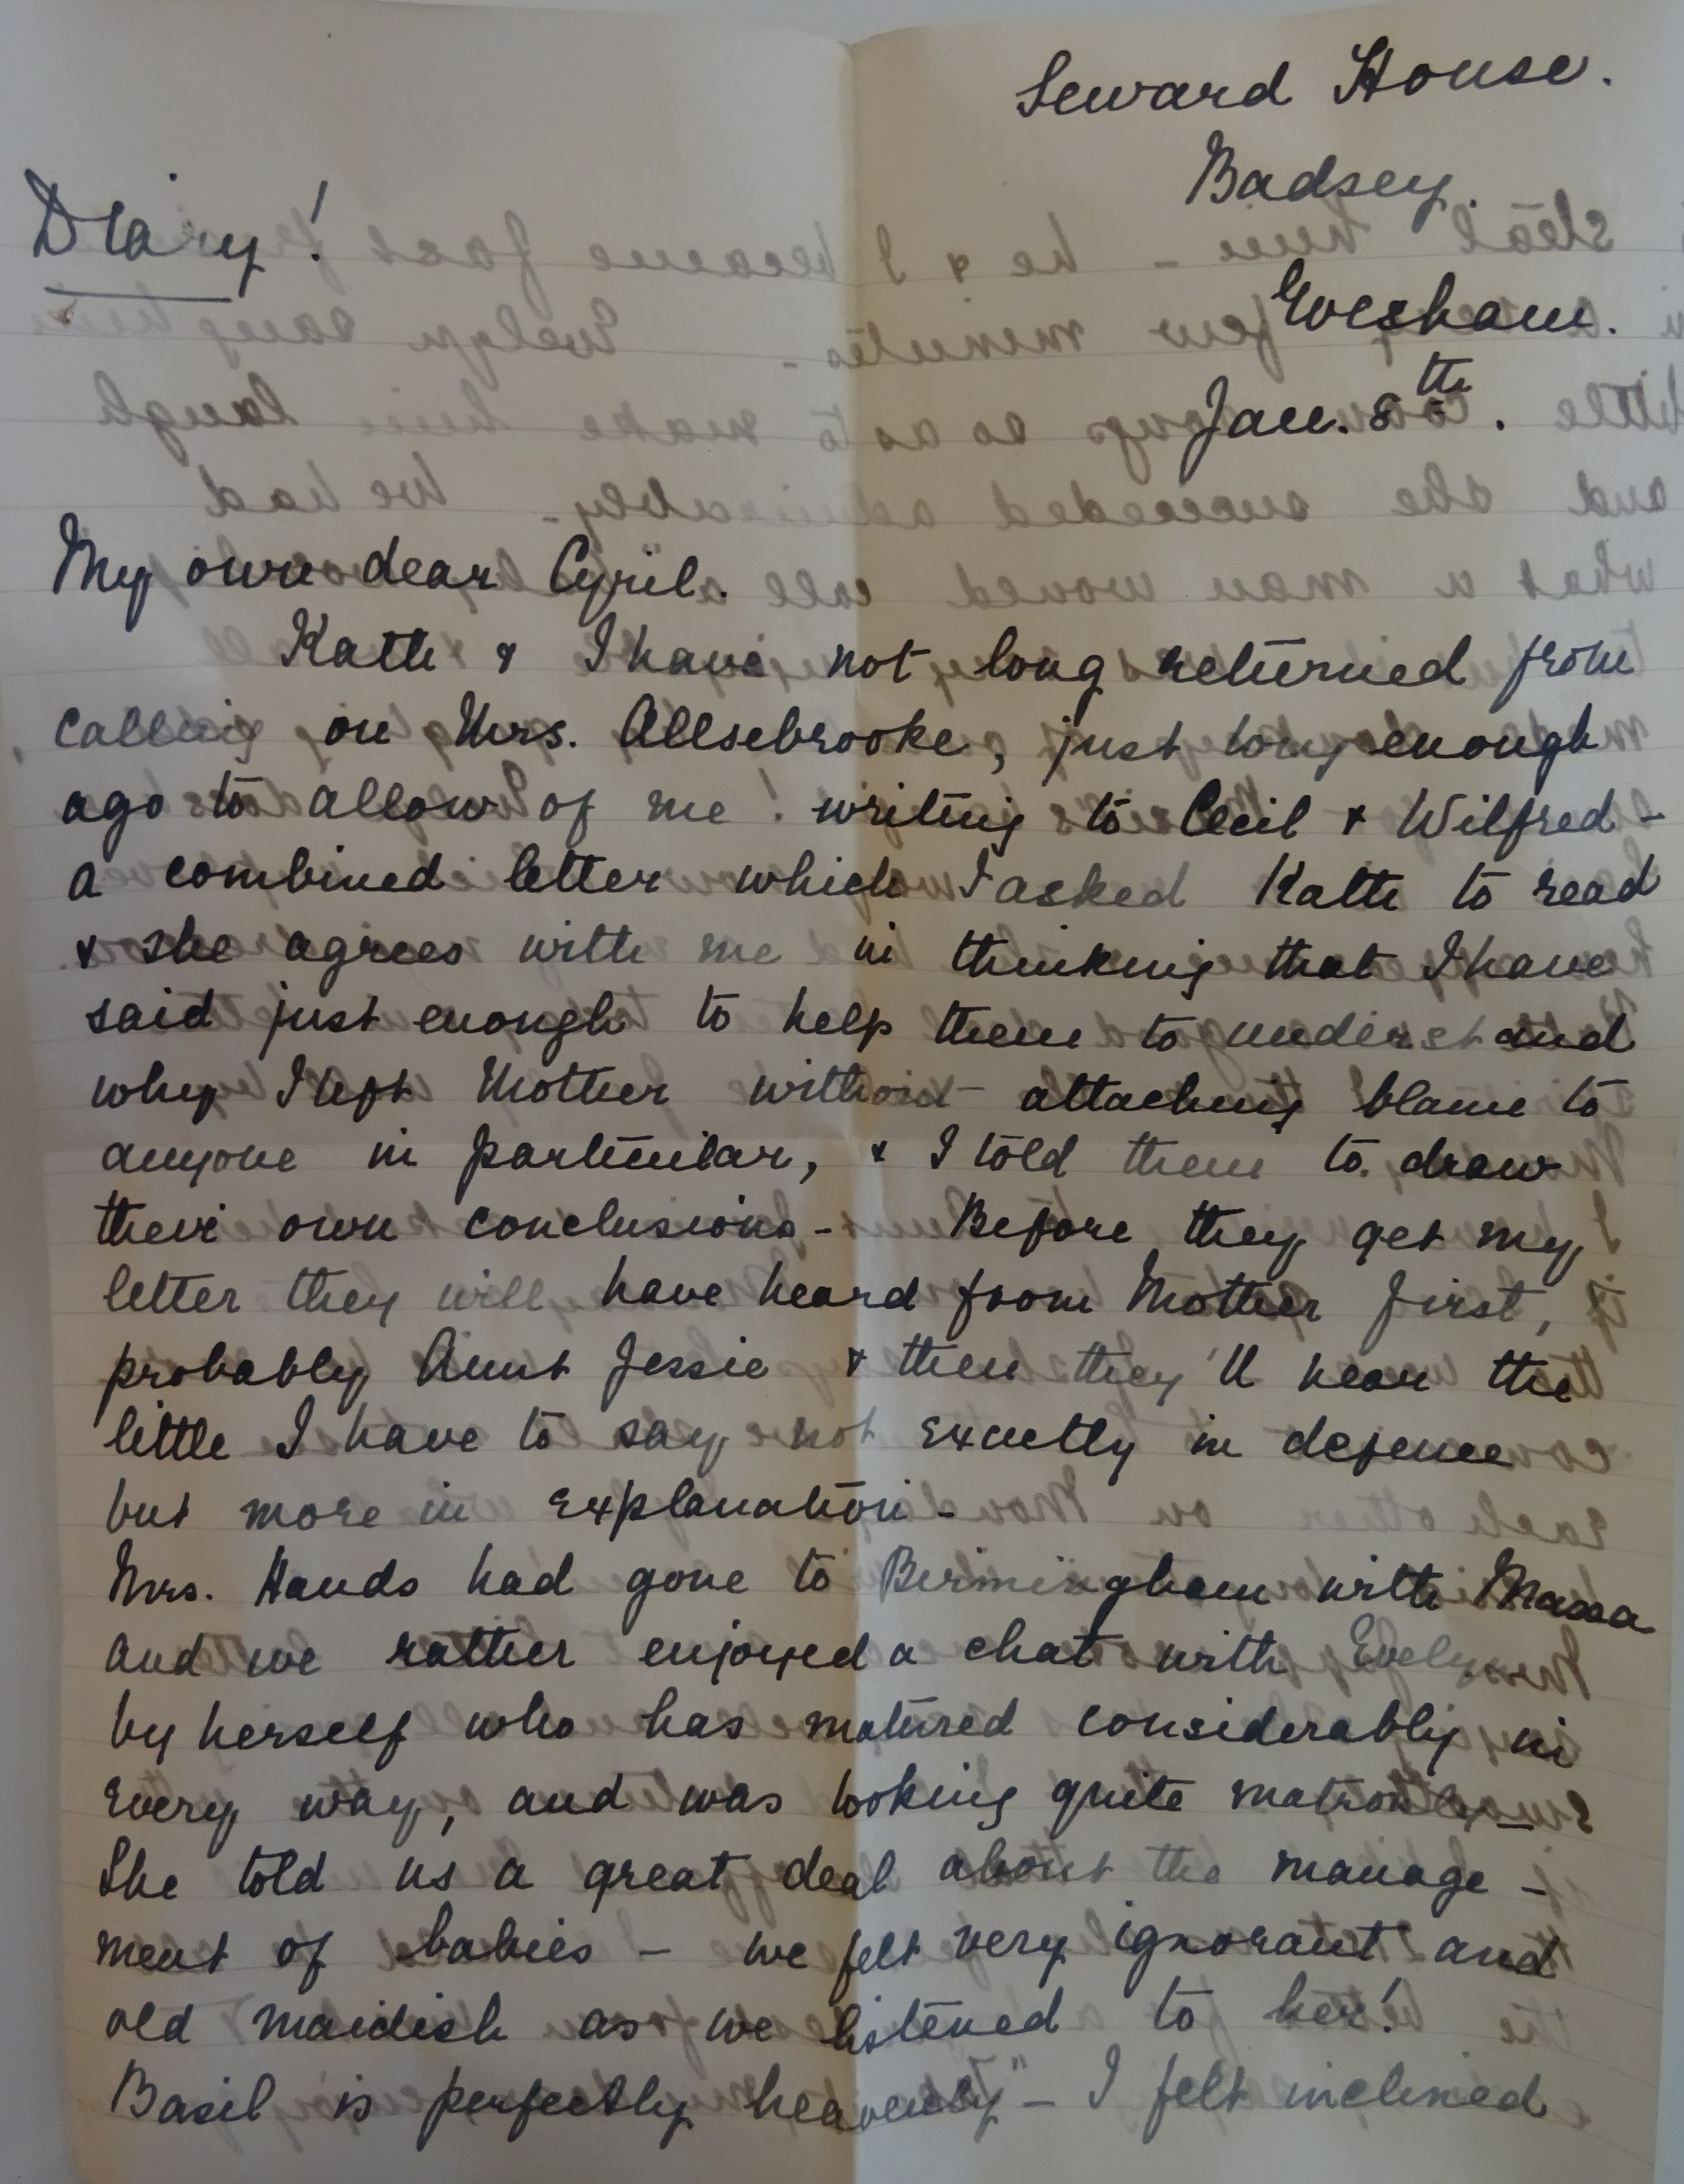 Seward House.
Badsey.
Diary!
Evesham.
Jan. 8th.
My own dear Cyril.
Katie & I have not long returned from
calling on Mrs. Allsebrooke, just long enough
ago to allow of me! writing to Cecil & Wilfred -
a combined letter which I asked Katie to read
& she agrees with me in thinking that I have
said just enough to help them to understand
why I left Mother without attaching blame to
anyone in particular, & I told them to draw
their own conclusions - Before they get my
letter they will have heard from Mother first,
probably Aunt Jessie & then they'll hear the
little I have to say not exactly in defence
but more in explanation -
Mrs. Hands had gone to Birmingham with Massa
and we rather enjoyed a chat with Evelyn
by herself who has matured considerably in
every way, and was looking quite matronly -
She told us a great deal about the manage -
ment of babies - we felt very ignorant and
old maidish as we listened to her!
Basil is perfectly heavenly" - I felt inclined